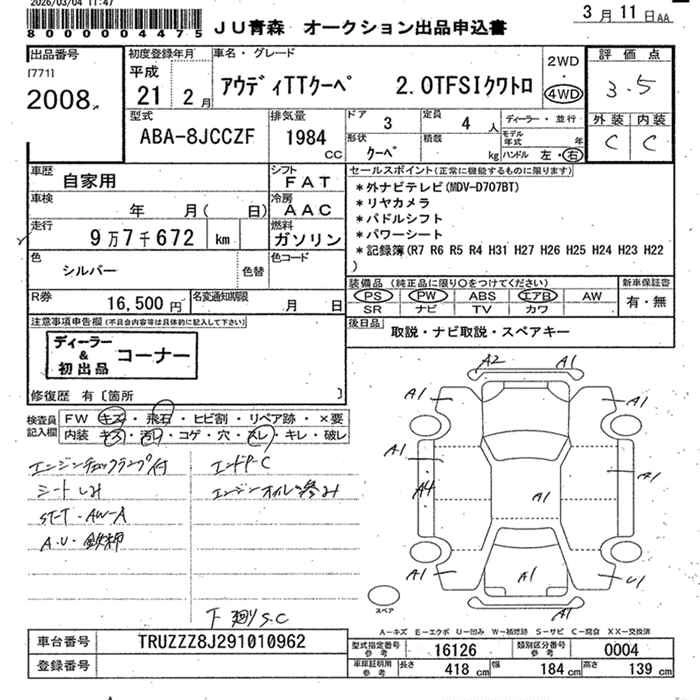 2026/03/04 11:47
8000004475
JU青森 オークション出品申込書
3月11日AA
出品番号
[771]
2008
初度登録年月
平成
21 2月
車名・グレード
アウディTTクーペ 2.0TFSIクワトロ
2WD
・
4WD
評価点
3.5
外装 内装
C C
型式
ABA-8JCCZF
排気量
1984
CC
ドア
3
定員
4人
形状
クーペ
積載
kg
ディーラー・並行
モデル年式 年
ハンドル 左・右
車歴
自家用
シフト
FAT
車検
年 月( 日)
冷房
AAC
走行
9万7千672 km
燃料
ガソリン
色
シルバー
色替
色コード
R券
16,500円
名変通知期限
月 日
セールスポイント(正常に機能するものに限ります)
*外ナビテレビ(MDV-D707BT)
*リヤカメラ
*パドルシフト
*パワーシート
*記録簿(R7 R6 R5 R4 H31 H27 H26 H25 H24 H23 H22
)
装備品 (純正品に限り○をつけてください)
PS PW ABS エアB AW
SR ナビ TV カワ
新車保証書
有・無
後日品
取説・ナビ取説・スペアキー
注意事項申告欄(不具合内容等は具体的に記入して下さい)
ディーラー
&
初出品
コーナー
修復歴 有〔箇所 〕
検査員
記入欄
FW キズ・飛石・ヒビ割・リペア跡・×要
内装 キズ・汚レ・コゲ・穴・スレ・キレ・破レ
エンジンチェックランプ付
シートしみ
ST-T・AW-A
A・U・鉄柄
エンドP-C
エンジンオイル滲み
下廻りS.C
A2 A1
A1 A1
A1
A4 A1 A1
A1 A1 U1
A1
スペア
A-キズ E-エクボ U-凹み W-補修跡 S-サビ C-腐食 XX-交換済
車台番号
TRUZZZ8J291010962
登録番号
型式指定番号
参考
16126
類別区分番号
参考
0004
車庫証明用
参考
長さ
418 cm
幅
184 cm
高さ
139 cm